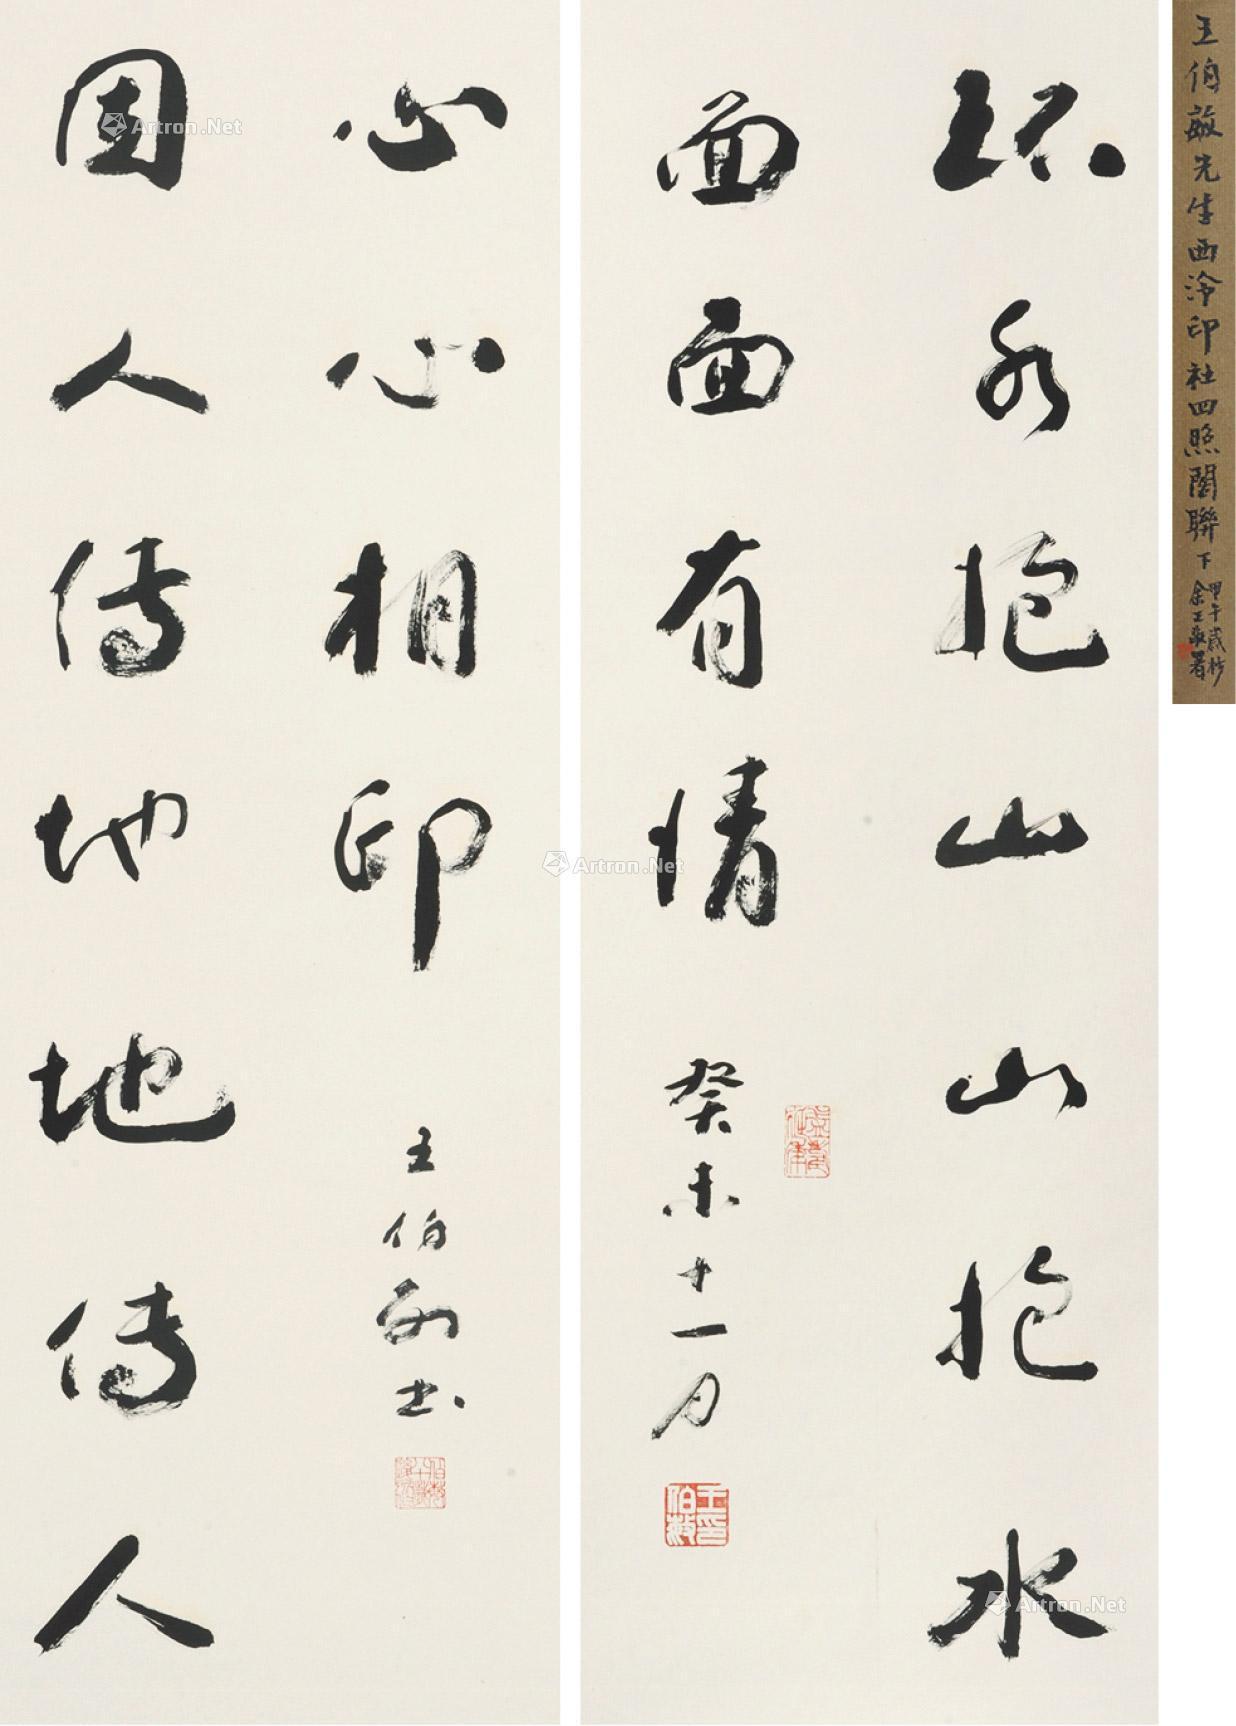 王伯敏先生西泠印社四照閣聯下
甲午歲杪
余正署
环水抱山山抱水
面面有情
癸未十一月
王伯敏印
因人傳地地傳人
心心相印
王伯敏书
Artron.Net
Artron.Net
Artron.Net